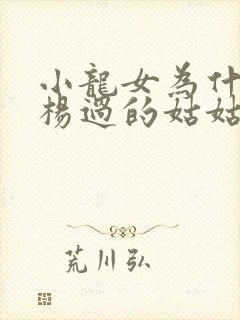 小龍女為什
楊過的姑姑
荒川弘